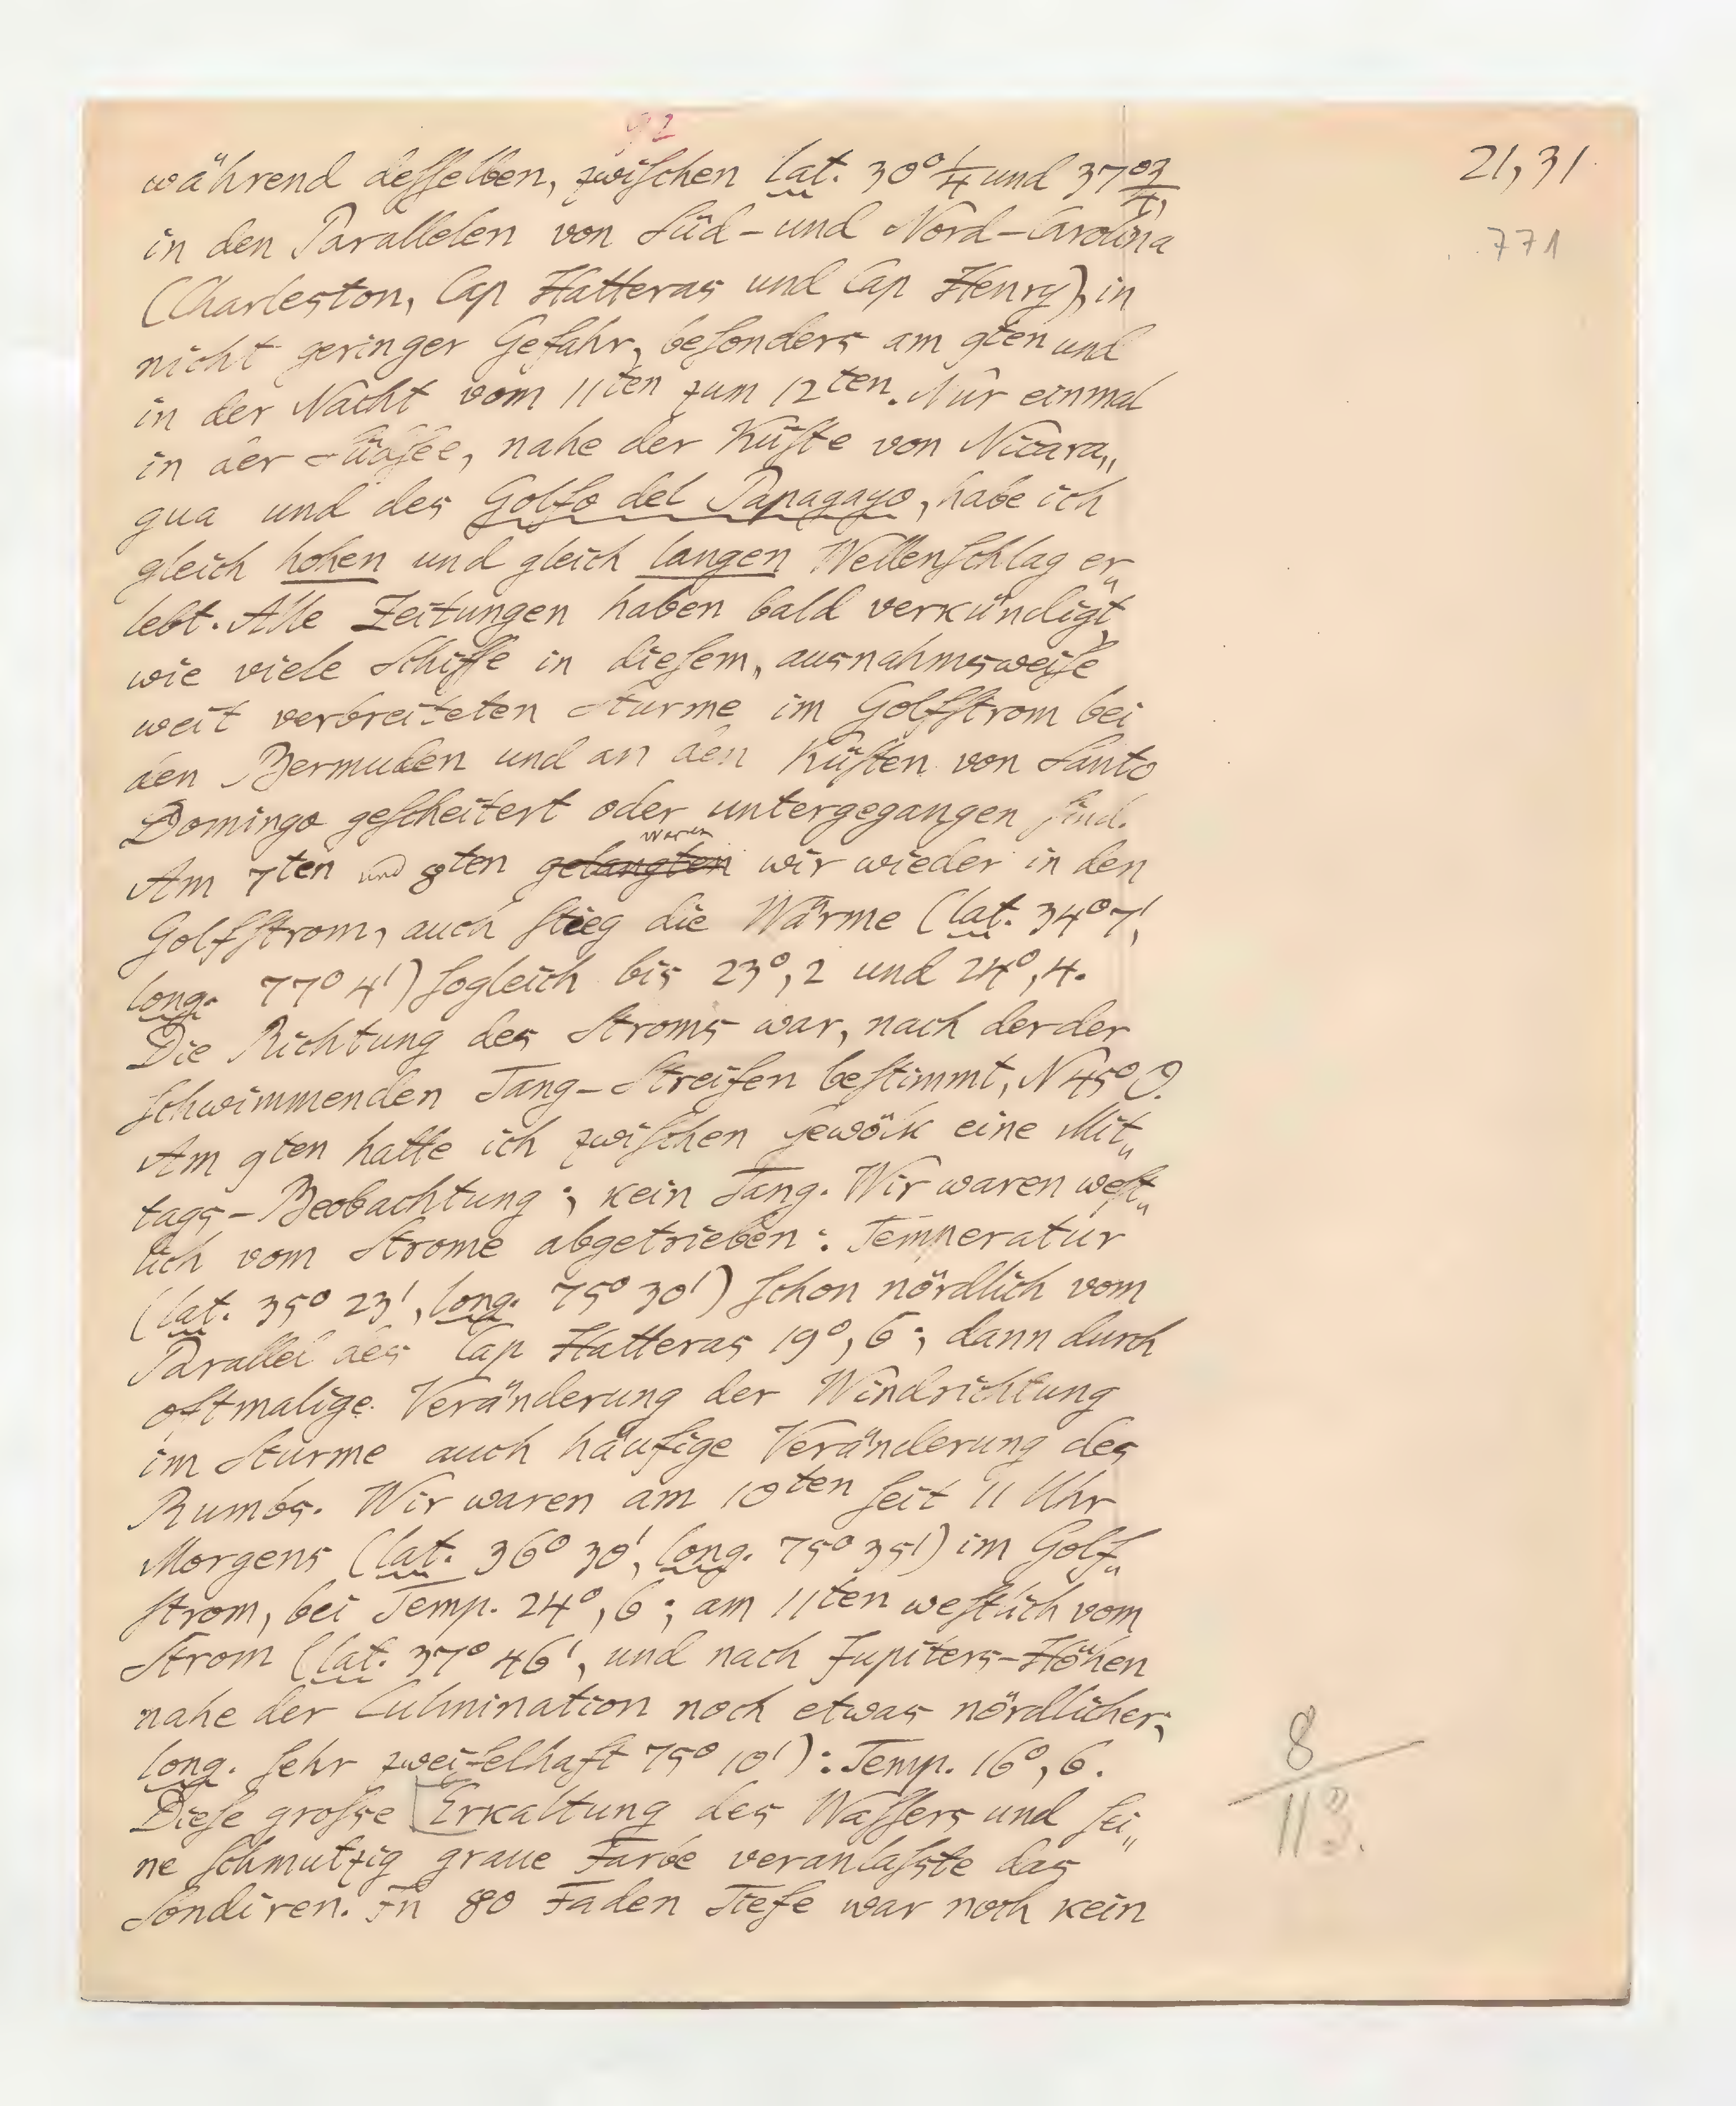 92
21,31
771
während desselben, zwischen lat. 30° 1/4 und 37° 3/4,
in den Parallelen von Süd- und Nord-Carolina
(Charleston, Cap Hatteras und Cap Henry), in
nicht geringer Gefahr, besonders am 9ten und
in der Nacht vom 11ten zum 12ten. Nur einmal
in der Südsee, nahe der Küste von Nicara„
gua und des Golfo del Papagayo, habe ich
gleich hohen und gleich langen Wellenschlag er„
lebt. Alle Zeitungen haben bald verkündigt,
wie viele Schiffe in diesem, ausnahmsweise
weit verbreiteten Sturme im Golfstrom bei
den Bermuden und an den Küsten von Santo
Domingo gescheitert oder untergegangen sind.
Am 7ten und 8ten gelangten waren wir wieder in den
Golfstrom, auch stieg die Wärme (lat. 34° 7',
long. 77° 4') sogleich bis 23°,2 und 24°,4.
Die Richtung des Stroms war, nach der der
schwimmenden Tang-Streifen bestimmt, N 45° O.
Am 9ten hatte ich zwischen Gewölk eine Mit„
tags-Beobachtung; kein Tang. Wir waren west„
lich vom Strome abgetrieben: Temperatur
(lat. 35° 23', long. 75° 30') schon nördlich vom
Parallel des Cap Hatteras 19°,6; dann durch
oftmalige Veränderung der Windrichtung
im Sturme auch häufige Veränderung des
Rumbs. Wir waren am 10ten seit 11 Uhr
Morgens (lat. 36° 30', long. 75° 35') im Golf„
strom, bei Temp. 24°,6; am 11ten westlich vom
Strom (lat. 37° 46', und nach Jupiters-Höhen
nahe der Culmination noch etwas nördlicher;
long. sehr zweifelhaft 75° 10'): Temp. 16°,6.
Diese grosse [Erkaltung des Wassers und sei„
ne schmutzig graue Farbe veranlasste das
Sondiren. In 80 Faden Tiefe war noch kein
8
113.